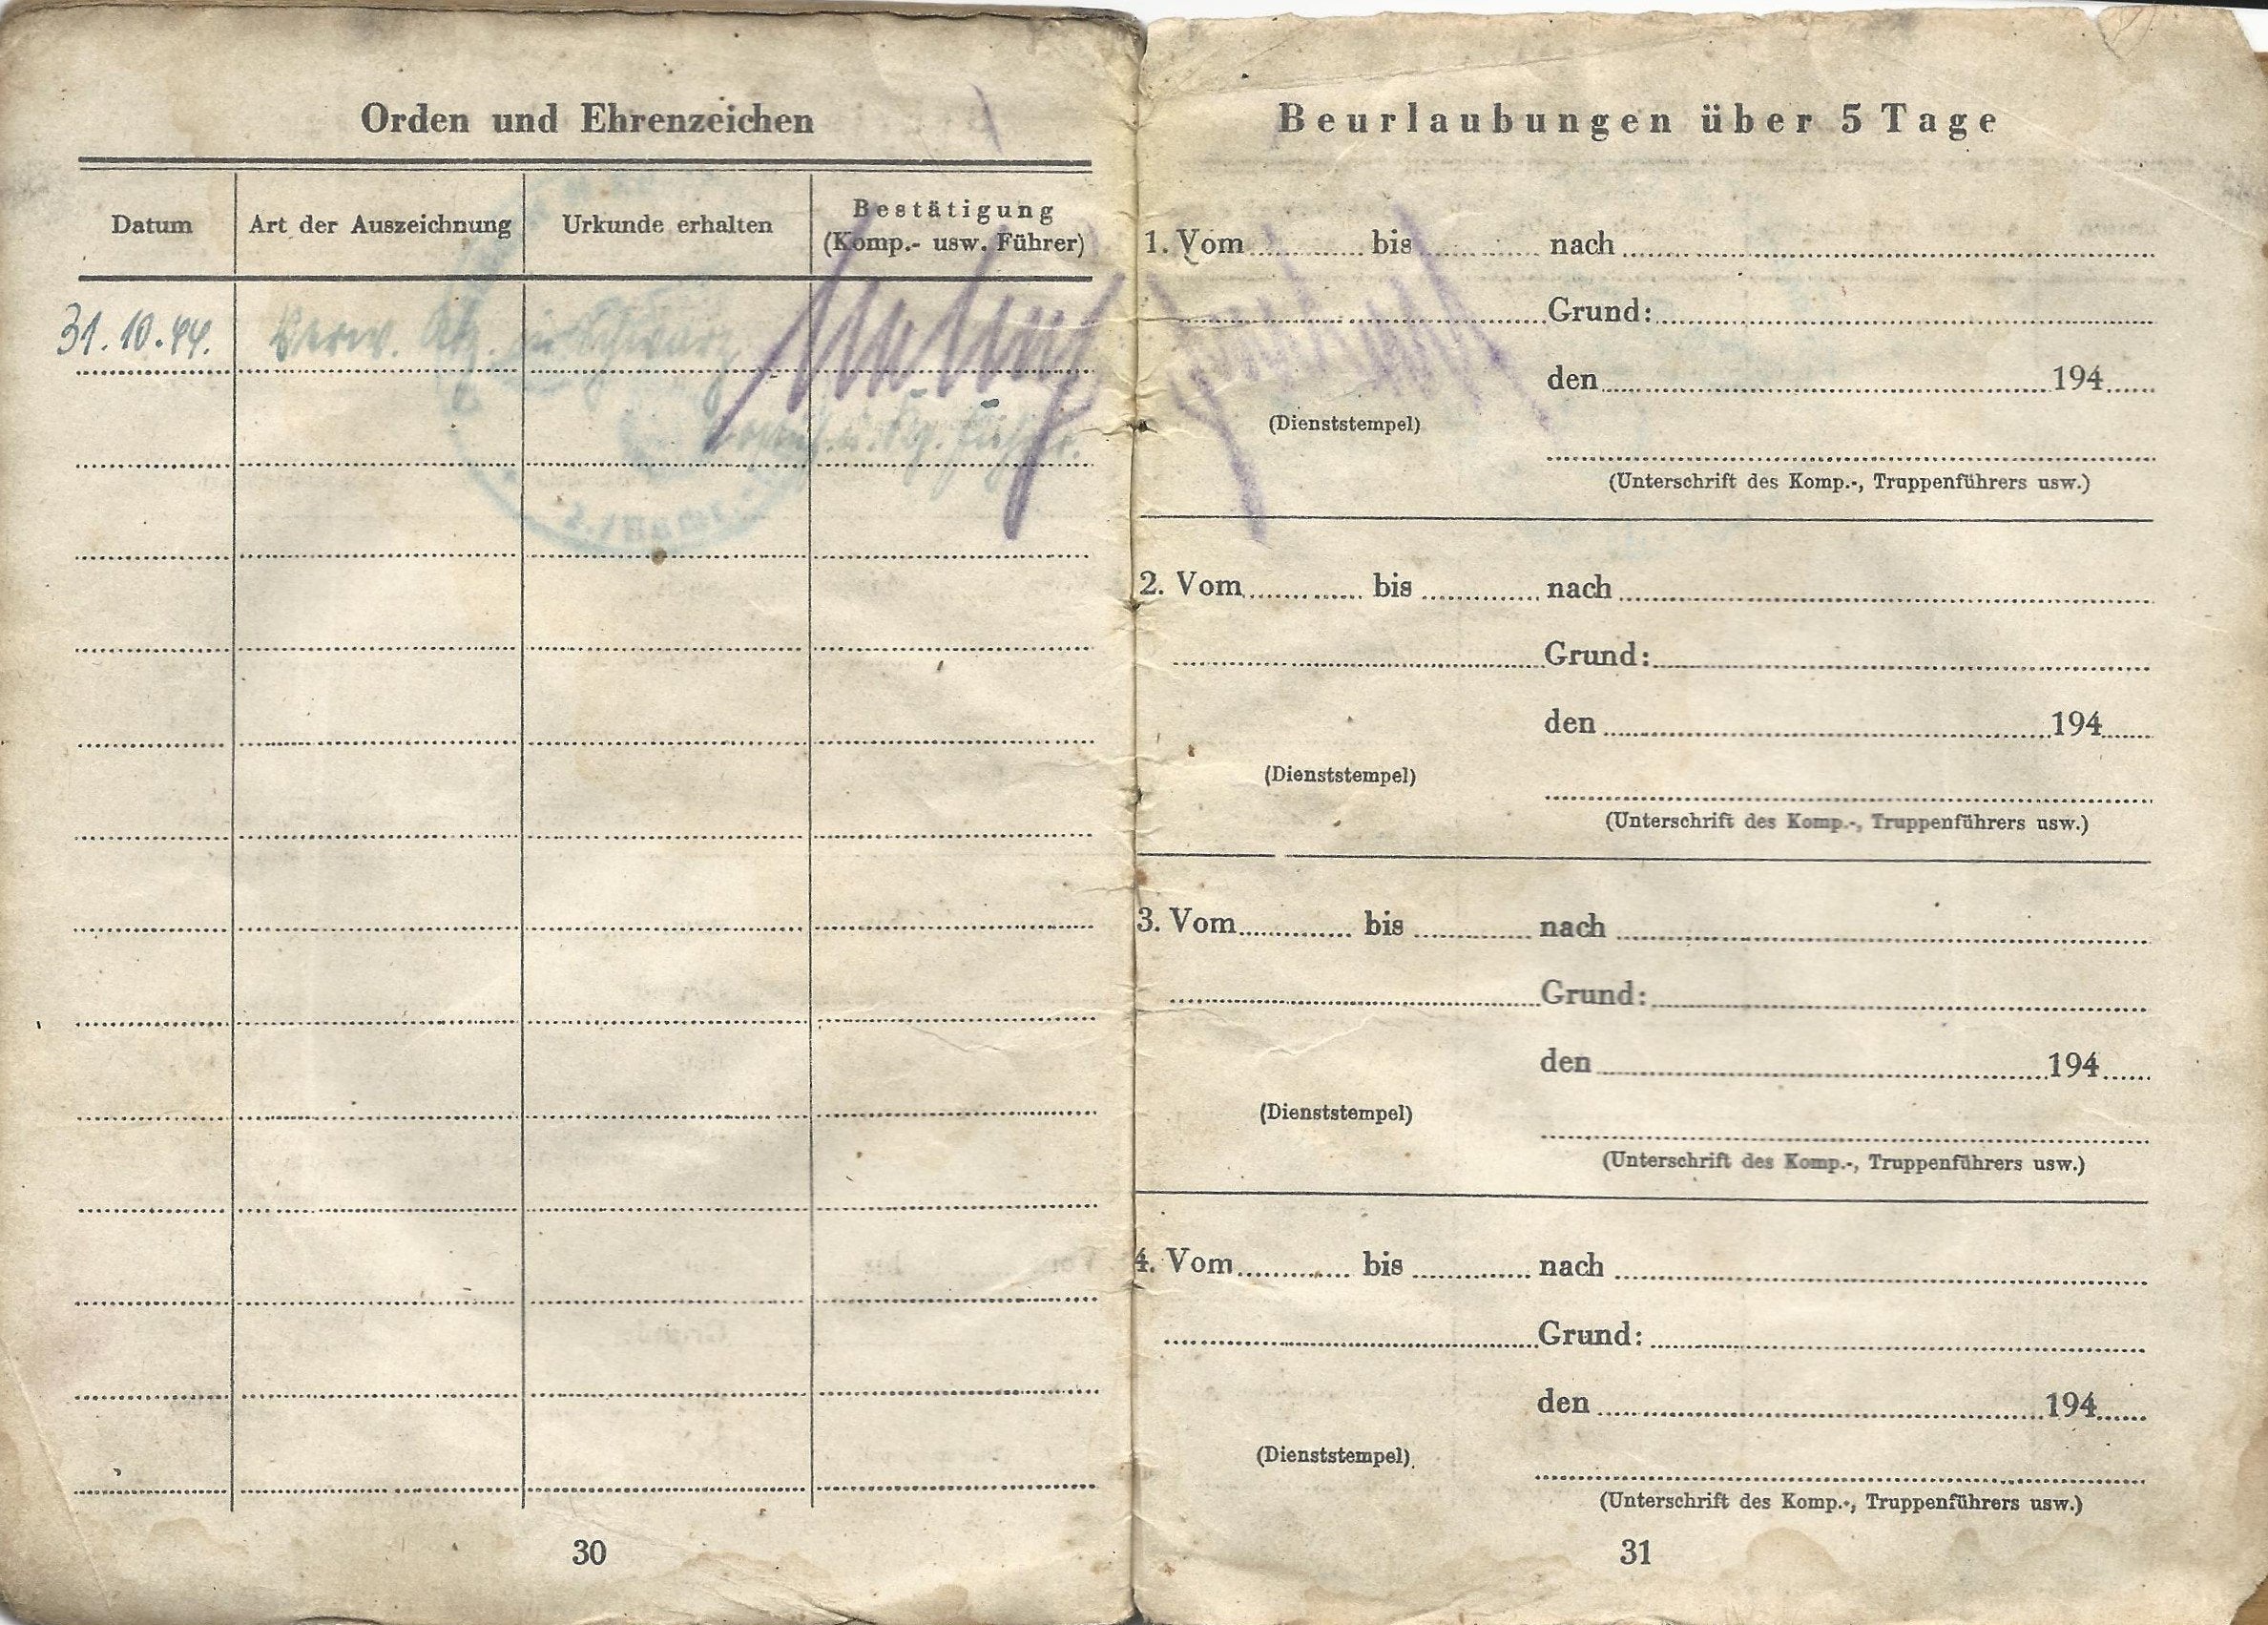 Orden und Ehrenzeichen
Datum
Art der Auszeichnung
Urkunde erhalten
Bestätigung
(Komp.- usw. Führer)
31.10.44. Verw. Abz. in Schwarz
u. Kp. Führer.
30
Beurlaubungen über 5 Tage
1. Vom bis nach
Grund:
den 194
(Dienststempel)
(Unterschrift des Komp.-, Truppenführers usw.)
2. Vom bis nach
Grund:
den 194
(Dienststempel)
(Unterschrift des Komp.-, Truppenführers usw.)
3. Vom bis nach
Grund:
den 194
(Dienststempel)
(Unterschrift des Komp.-, Truppenführers usw.)
4. Vom bis nach
Grund:
den 194
(Dienststempel)
(Unterschrift des Komp.-, Truppenführers usw.)
31